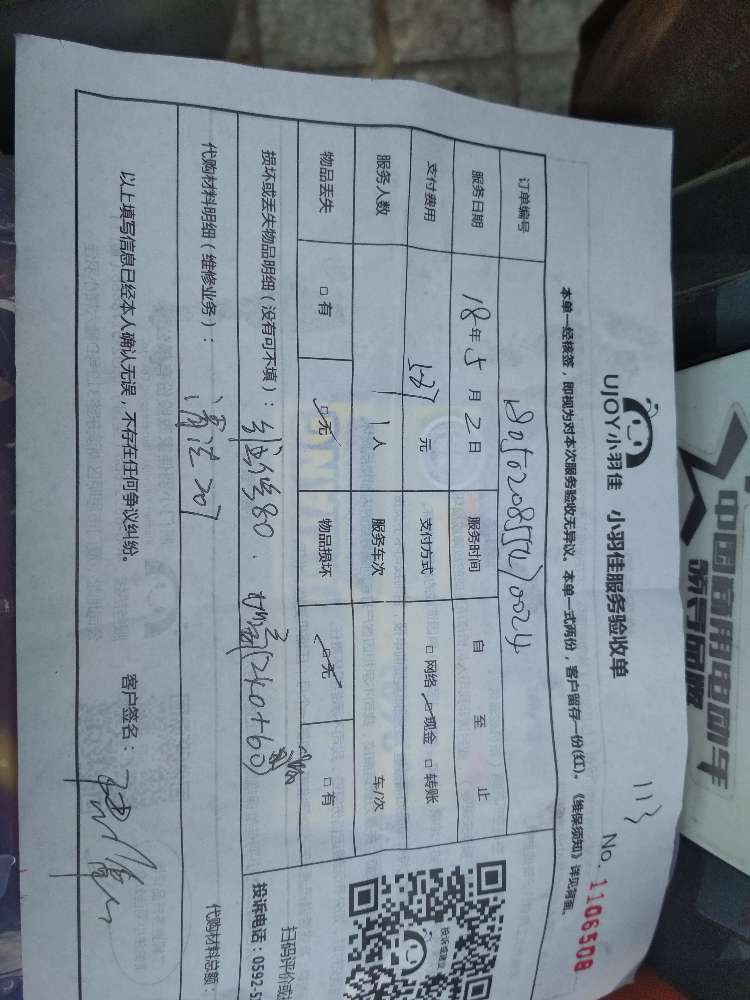 UJOY小羽佳 小羽佳服务验收单
113
No. 1106508
本单一经核签，即视为对本次服务验收无异议。本单一式两份，客户留存一份(红)。《维保须知》详见背面。
订单编号
服务日期 18年5月2日 服务时间 自 至 止
支付费用 元 支付方式 □网络 ☑现金 □转账
服务人数 1人 服务车次 车/次
物品丢失 □有 ☑无 物品损坏 ☑无 □有
损坏或丢失物品明细（没有可不填）： 80. (240+60)
代购材料明细（维修业务）：
代购材料总额：
以上填写信息已经本人确认无误，不存在任何争议纠纷。 客户签名：
扫码评价或
投诉电话：0592-5
中国商用电动车
领导品牌